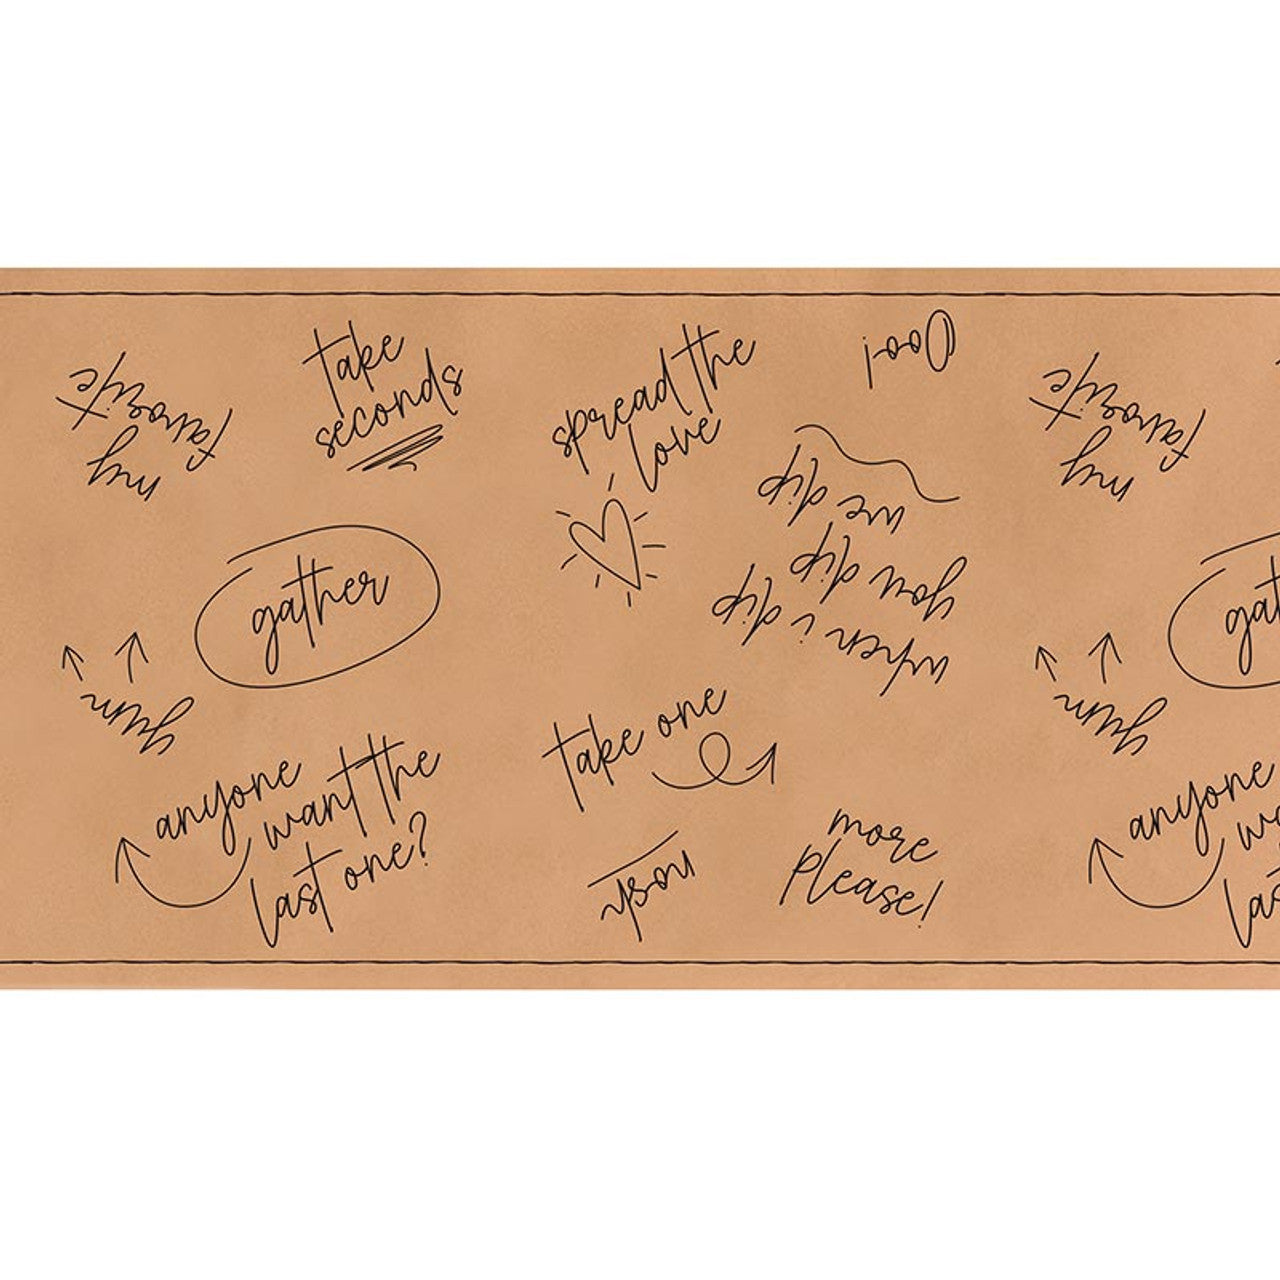 my
favorite
take
seconds
spread the
love
Ooo!
when i dip
you dip
we dip
my
favorite
gather
gat
yum
yum
anyone
want the
last one?
take one
nosh
more
please!
anyone